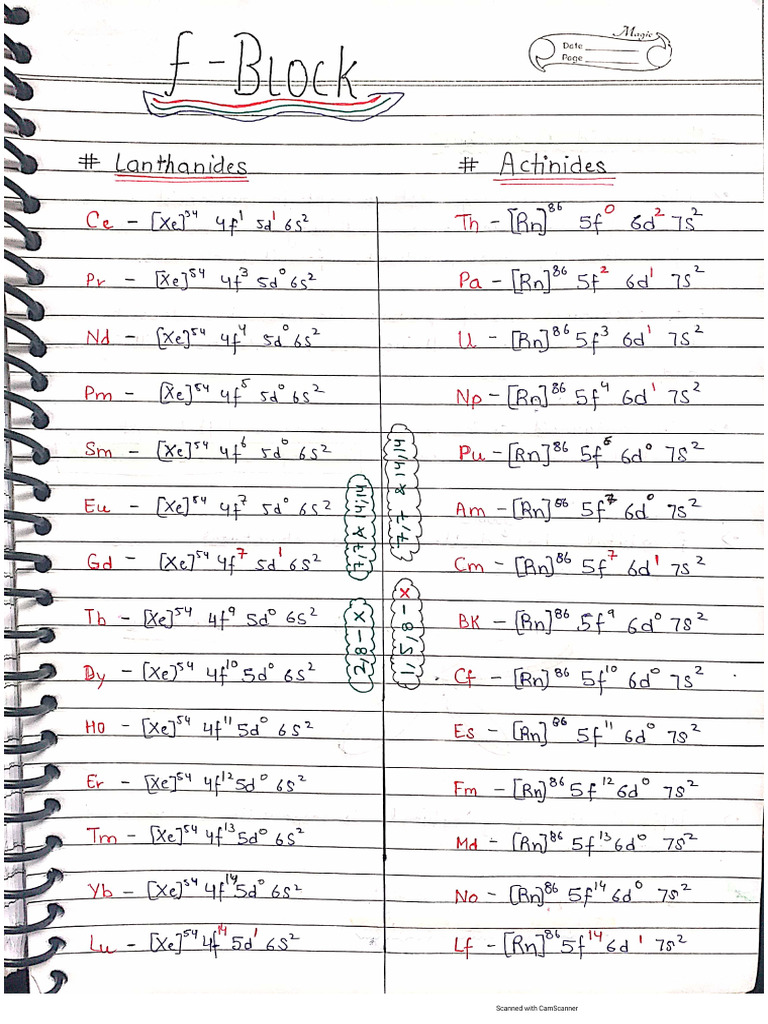 Magic
Date
Page
f-BLOCK
# Lanthanides
Ce - [Xe]⁵⁴ 4f¹ 5d¹ 6s²
Pr - [Xe]⁵⁴ 4f³ 5d⁰ 6s²
Nd - [Xe]⁵⁴ 4f⁴ 5d⁰ 6s²
Pm - [Xe]⁵⁴ 4f⁵ 5d⁰ 6s²
Sm - [Xe]⁵⁴ 4f⁶ 5d⁰ 6s²
Eu - [Xe]⁵⁴ 4f⁷ 5d⁰ 6s²
Gd - [Xe]⁵⁴ 4f⁷ 5d¹ 6s²
Tb - [Xe]⁵⁴ 4f⁹ 5d⁰ 6s²
Dy - [Xe]⁵⁴ 4f¹⁰ 5d⁰ 6s²
Ho - [Xe]⁵⁴ 4f¹¹ 5d⁰ 6s²
Er - [Xe]⁵⁴ 4f¹² 5d⁰ 6s²
Tm - [Xe]⁵⁴ 4f¹³ 5d⁰ 6s²
Yb - [Xe]⁵⁴ 4f¹⁴ 5d⁰ 6s²
Lu - [Xe]⁵⁴ 4f¹⁴ 5d¹ 6s²
7,7 & 14,14
2,8 - X
# Actinides
Th - [Rn]⁸⁶ 5f⁰ 6d² 7s²
Pa - [Rn]⁸⁶ 5f² 6d¹ 7s²
U - [Rn]⁸⁶ 5f³ 6d¹ 7s²
Np - [Rn]⁸⁶ 5f⁴ 6d¹ 7s²
Pu - [Rn]⁸⁶ 5f⁶ 6d⁰ 7s²
Am - [Rn]⁸⁶ 5f⁷ 6d⁰ 7s²
Cm - [Rn]⁸⁶ 5f⁷ 6d¹ 7s²
BK - [Rn]⁸⁶ 5f⁹ 6d⁰ 7s²
Cf - [Rn]⁸⁶ 5f¹⁰ 6d⁰ 7s²
Es - [Rn]⁸⁶ 5f¹¹ 6d⁰ 7s²
Fm - [Rn]⁸⁶ 5f¹² 6d⁰ 7s²
Md - [Rn]⁸⁶ 5f¹³ 6d⁰ 7s²
No - [Rn]⁸⁶ 5f¹⁴ 6d⁰ 7s²
Lf - [Rn]⁸⁶ 5f¹⁴ 6d¹ 7s²
7,7 & 14,14
1,5,8 - X
Scanned with CamScanner